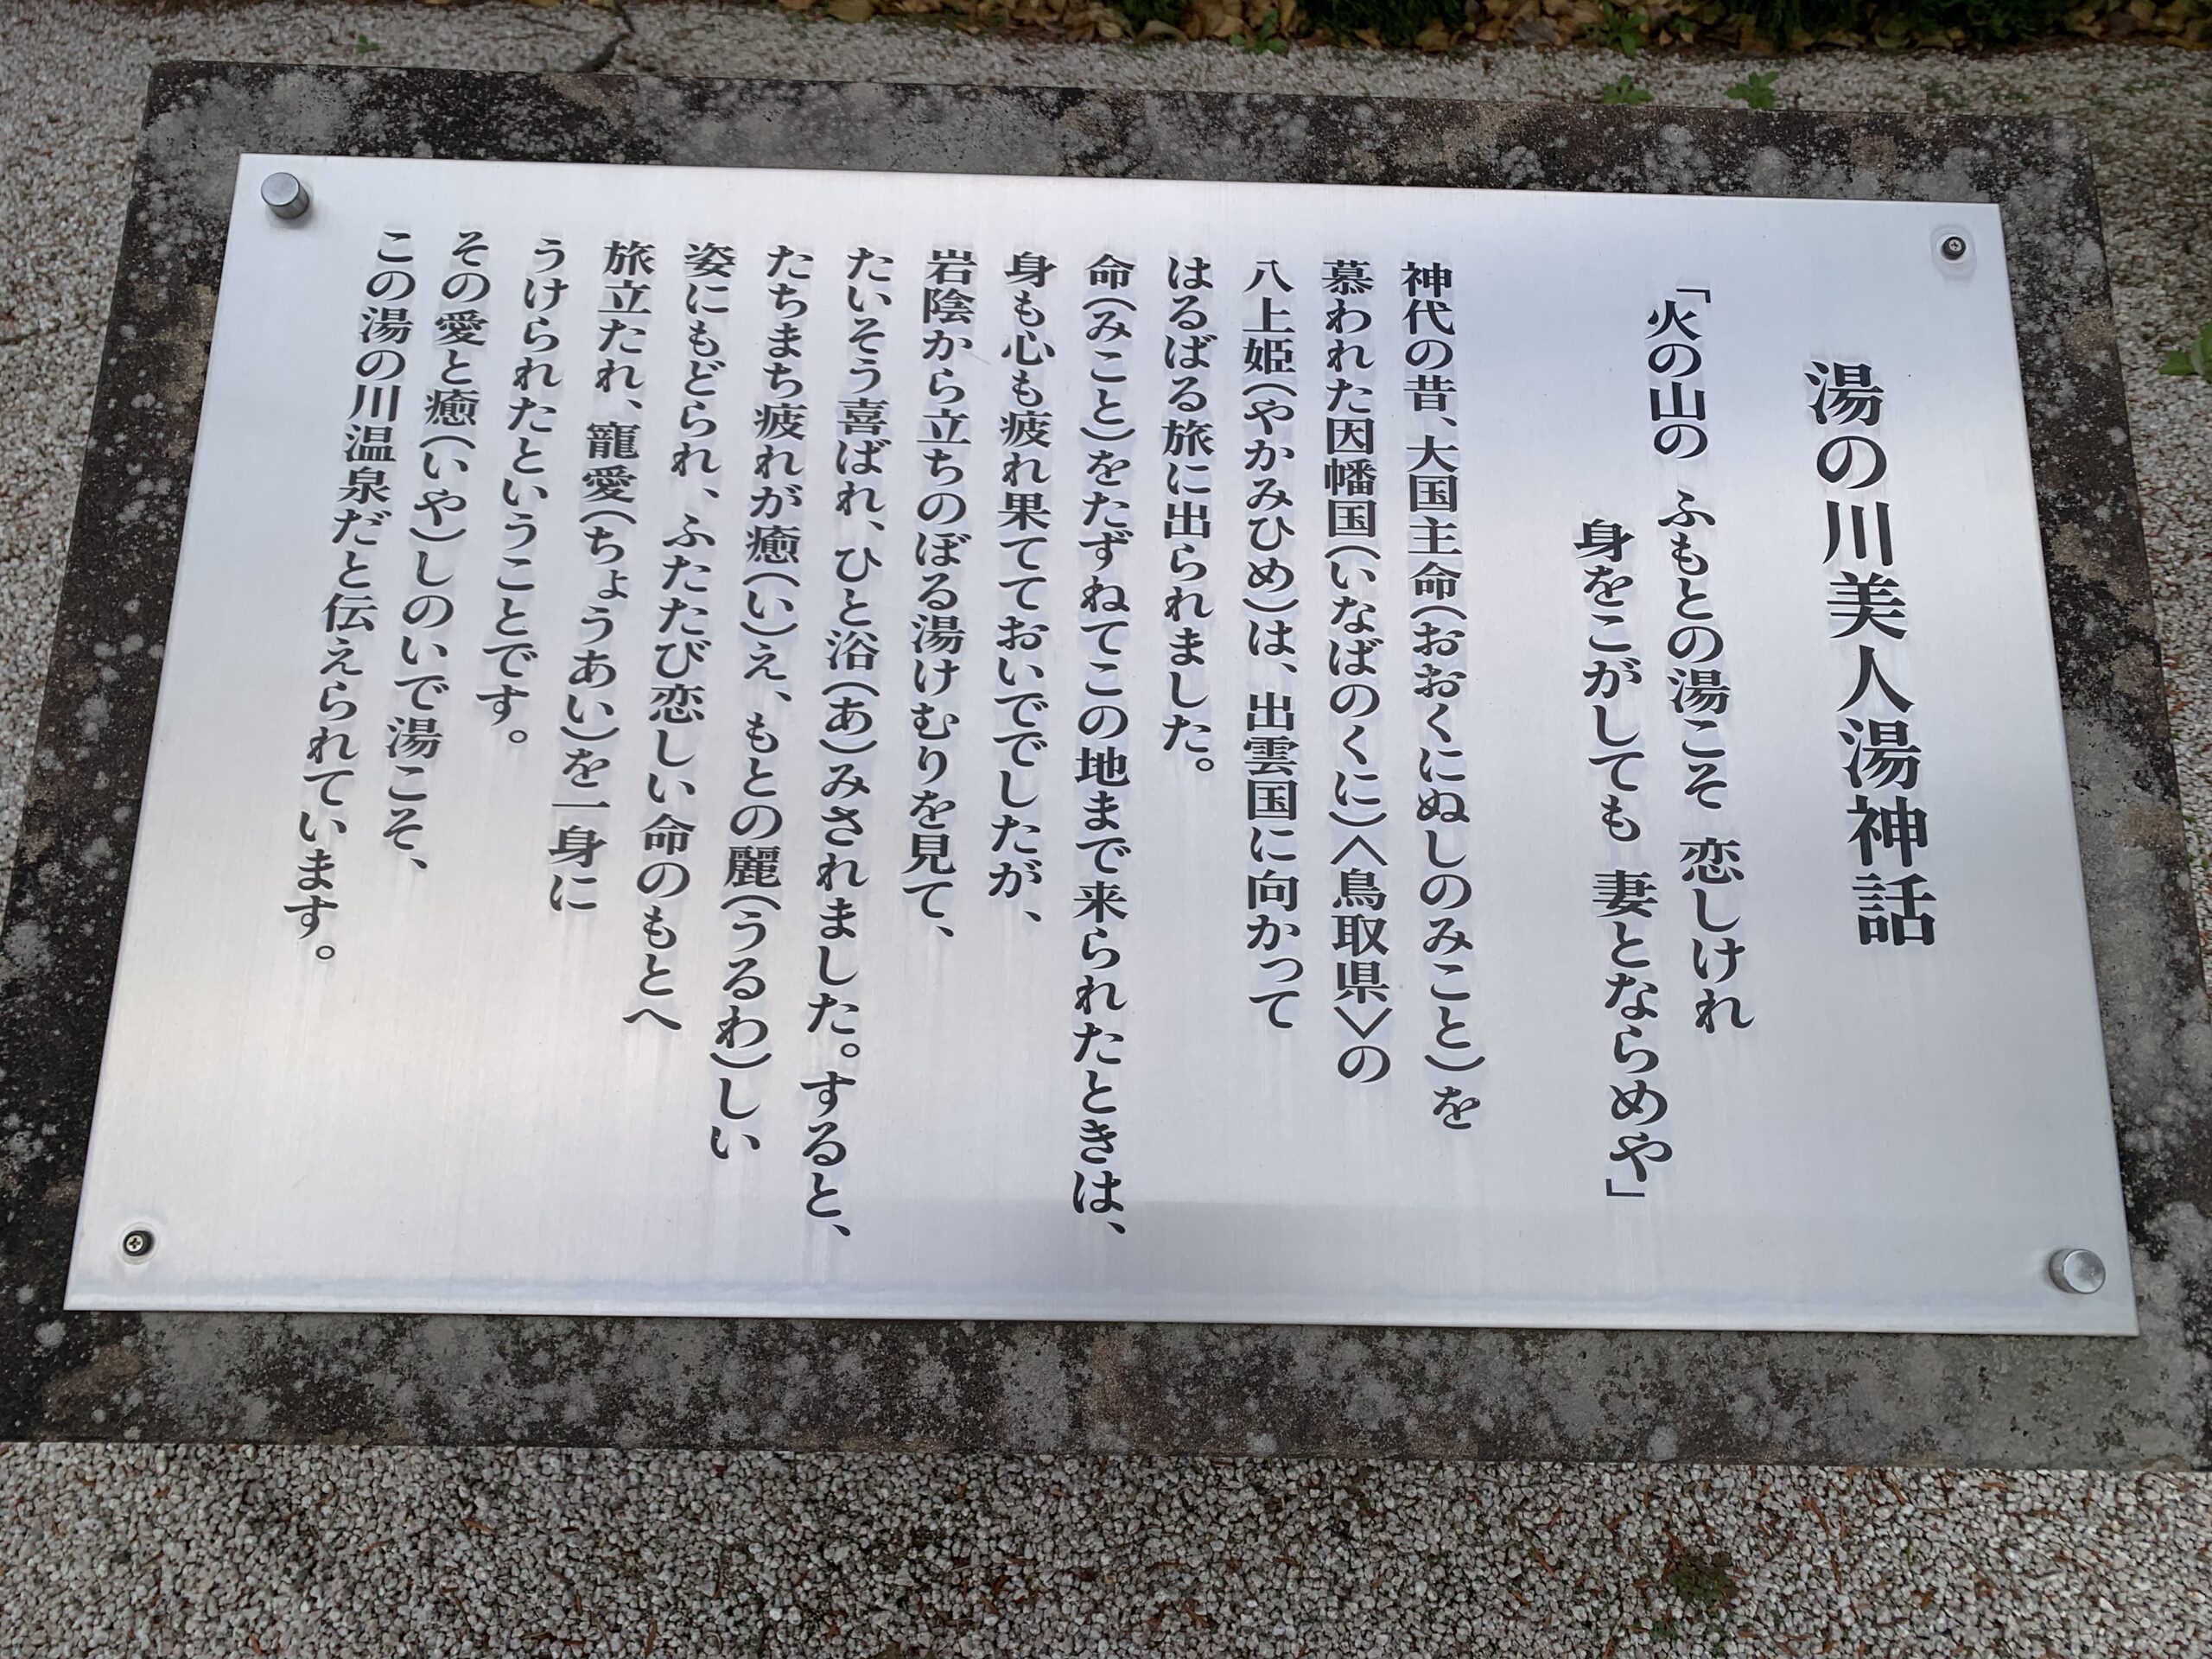 湯の川美人湯神話
「火の山の ふもとの湯こそ 恋しけれ
身をこがしても 妻とならめや」
神代の昔、大国主命(おおくにぬしのみこと)を
慕われた因幡国(いなばのくに)〈鳥取県〉の
八上姫(やかみひめ)は、出雲国に向かって
はるばる旅に出られました。
命(みこと)をたずねてこの地まで来られたときは、
身も心も疲れ果てておいででしたが、
岩陰から立ちのぼる湯けむりを見て、
たいそう喜ばれ、ひと浴(あ)みされました。すると、
たちまち疲れが癒(い)え、もとの麗(うるわ)しい
姿にもどられ、ふたたび恋しい命のもとへ
旅立たれ、寵愛(ちょうあい)を一身に
うけられたということです。
その愛と癒(いや)しのいで湯こそ、
この湯の川温泉だと伝えられています。